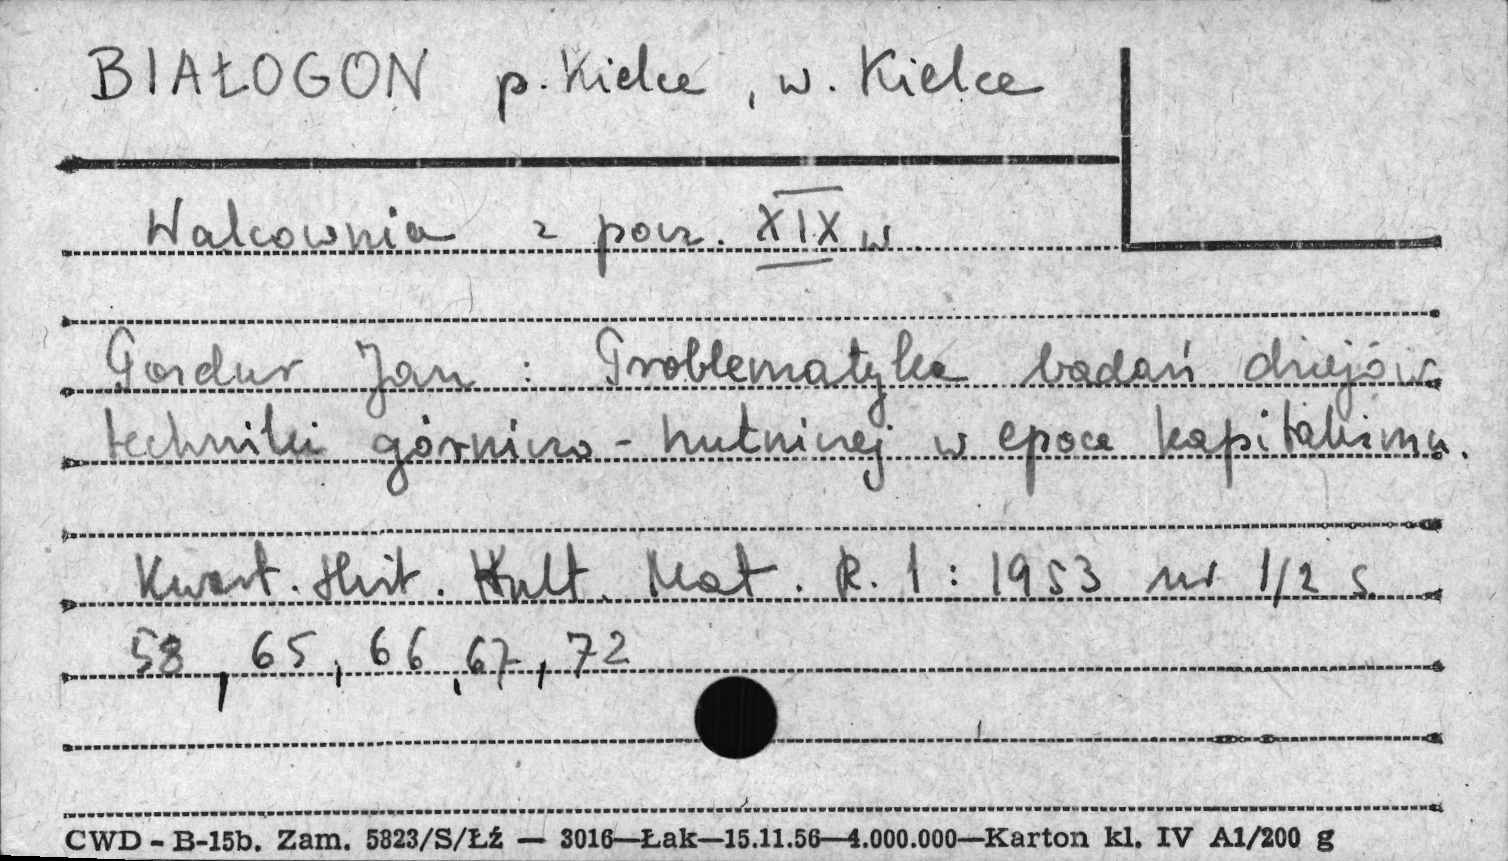 BIAŁOGON p. Kielce, w. Kielce
Walcownia z pocz. XIX w
Jan: Problematyka badań dziejów
techniki górniczo-hutniczej w epoce kapitalizmu.
Kwart. Hist. Kult. Mat. R. 1: 1953 nr 1/2 s.
58, 65, 66, 67, 72
CWD - B-15b. Zam. 5823/S/Łź — 3016—Łak—15.11.56—4.000.000—Karton kl. IV A1/200 g